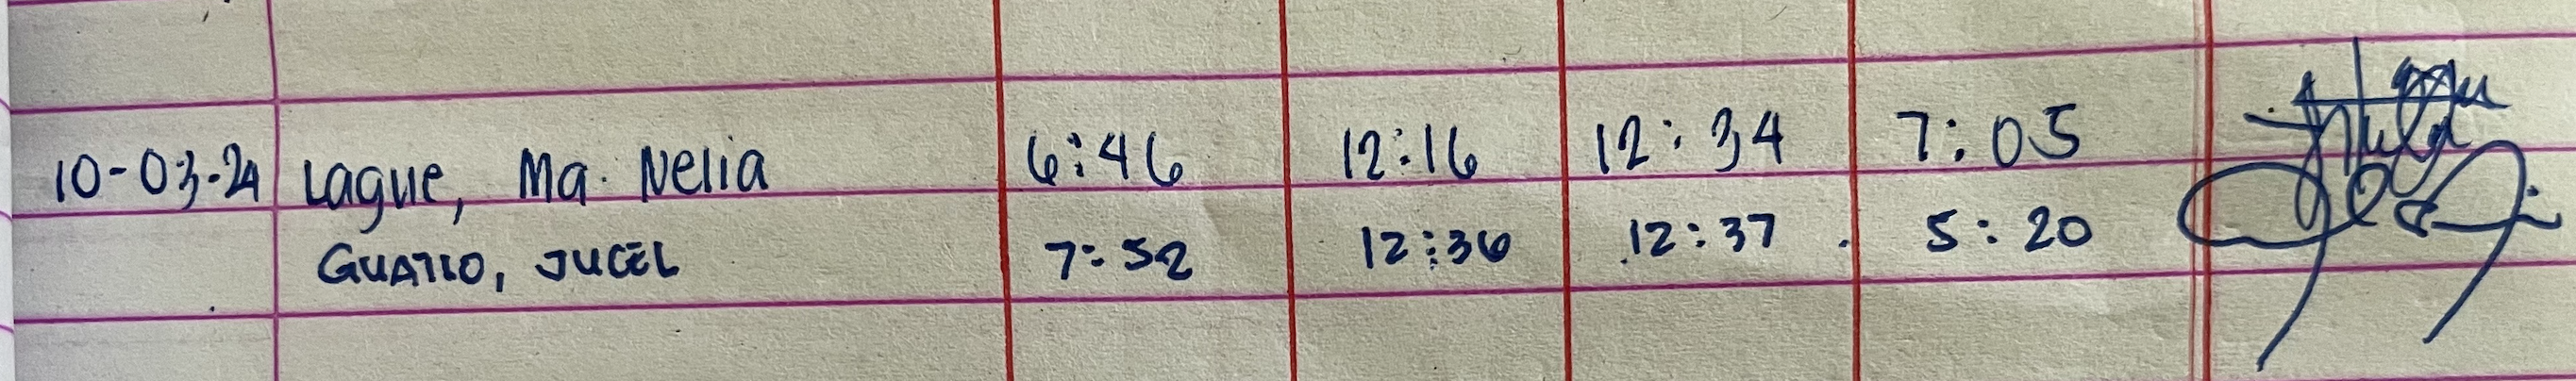 10-03-24 Lague, Ma. Nelia 6:46 12:16 12:34 7:05
GUATIO, JUCEL 7:52 12:36 12:37 5:20